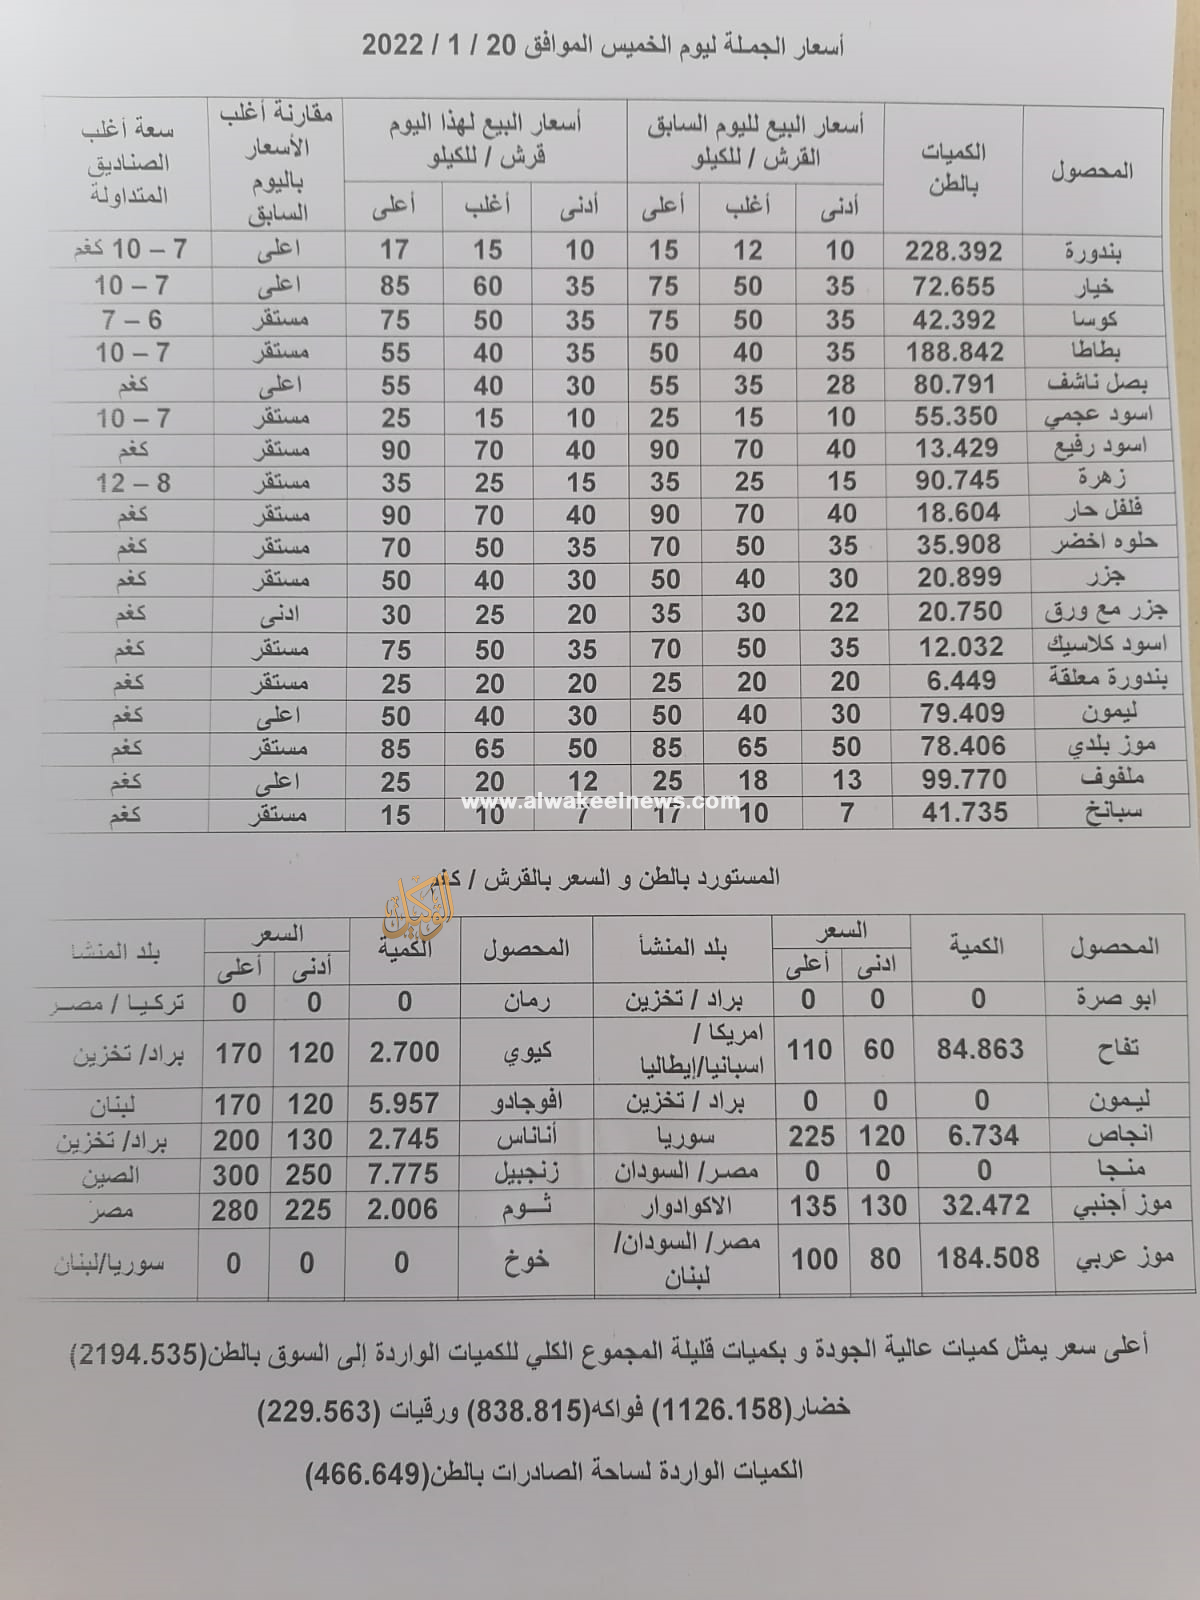 أسعار الجملة ليوم الخميس الموافق 20 / 1 / 2022
المحصول الكميات بالطن أسعار البيع لليوم السابق القرش / للكيلو أسعار البيع لهذا اليوم قرش / للكيلو مقارنة أغلب الأسعار باليوم السابق سعة أغلب الصناديق المتداولة
أدنى أغلب أعلى أدنى أغلب أعلى
بندورة 228.392 10 12 15 10 15 17 اعلى 7 – 10 كغم
خيار 72.655 35 50 75 35 60 85 اعلى 7 – 10
كوسا 42.392 35 50 75 35 50 75 مستقر 6 – 7
بطاطا 188.842 35 40 50 35 40 55 مستقر 7 – 10
بصل ناشف 80.791 28 35 55 30 40 55 اعلى كغم
اسود عجمي 55.350 10 15 25 10 15 25 مستقر 7 – 10
اسود رفيع 13.429 40 70 90 40 70 90 مستقر كغم
زهرة 90.745 15 25 35 15 25 35 مستقر 8 – 12
فلفل حار 18.604 40 70 90 40 70 90 مستقر كغم
حلوه اخضر 35.908 35 50 70 35 50 70 مستقر كغم
جزر 20.899 30 40 50 30 40 50 مستقر كغم
جزر مع ورق 20.750 22 30 35 20 25 30 ادنى كغم
اسود كلاسيك 12.032 35 50 70 35 50 75 مستقر كغم
بندورة معلقة 6.449 20 20 25 20 20 25 مستقر كغم
ليمون 79.409 30 40 50 30 40 50 اعلى كغم
موز بلدي 78.406 50 65 85 50 65 85 مستقر كغم
ملفوف 99.770 13 18 25 12 20 25 اعلى كغم
www.alwakeelnews.com
سبانخ 41.735 7 10 17 7 10 15 مستقر كغم
المستورد بالطن و السعر بالقرش / كغم
الوكيل
المحصول الكمية السعر بلد المنشأ المحصول الكمية السعر بلد المنشا
ادنى أعلى أدنى أعلى
ابو صرة 0 0 0 براد / تخزين رمان 0 0 0 تركيا / مصر
تفاح 84.863 60 110 امريكا / اسبانيا/إيطاليا كيوي 2.700 120 170 براد/ تخزين
ليمون 0 0 0 براد / تخزين افوجادو 5.957 120 170 لبنان
انجاص 6.734 120 225 سوريا أناناس 2.745 130 200 براد/ تخزين
منجا 0 0 0 مصر/ السودان زنجبيل 7.775 250 300 الصين
موز أجنبي 32.472 130 135 الاكوادوار ثوم 2.006 225 280 مصر
موز عربي 184.508 80 100 مصر/ السودان/ لبنان خوخ 0 0 0 سوريا/لبنان
أعلى سعر يمثل كميات عالية الجودة و بكميات قليلة المجموع الكلي للكميات الواردة إلى السوق بالطن(2194.535)
خضار(1126.158) فواكه(838.815) ورقيات (229.563)
الكميات الواردة لساحة الصادرات بالطن(466.649)